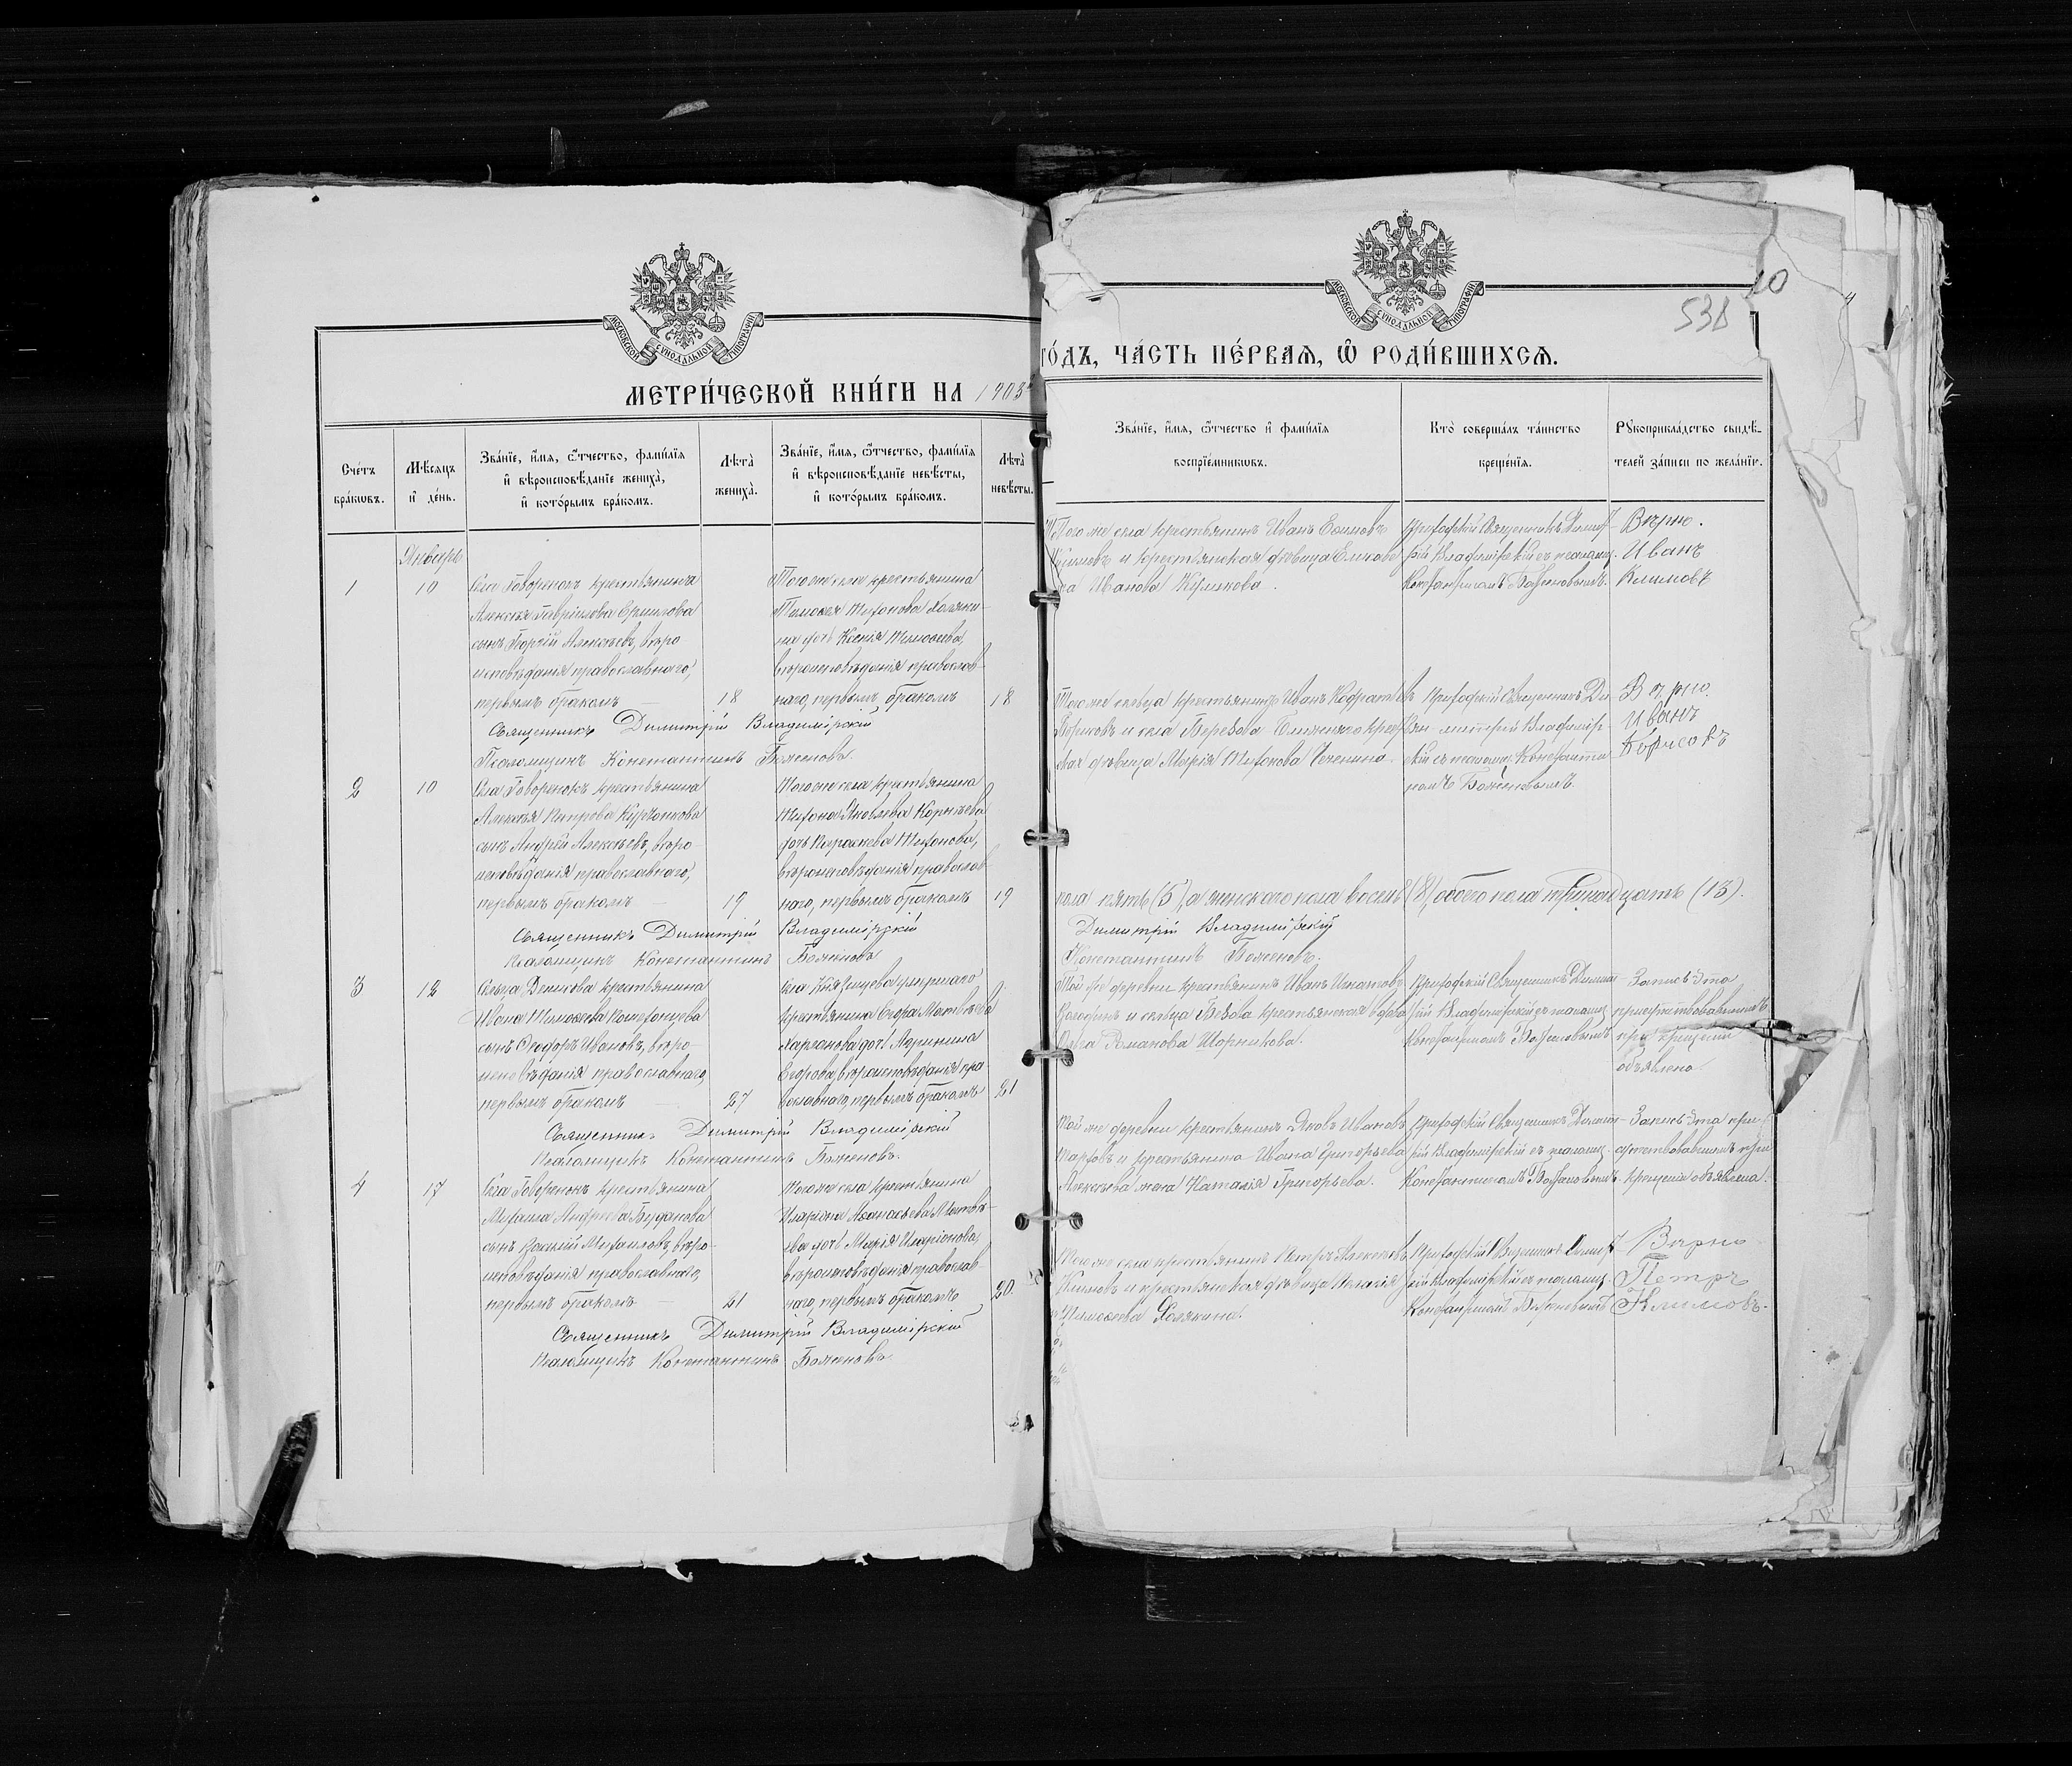 МОСКОВСКОЙ СѴНОДАЛЬНОЙ ТИПОГРАФІИ
МЕТРИ́ЧЕСКОЙ КНИ́ГИ НА 1903
Сче́тъ бра́кѡвъ.
Мѣ́сяцъ и҆ де́нь.
Зва́нїе, и҆́мя, ѻ҆́тчество, фами́лїя
и҆ вѣроисповѣ́данїе жениха̀,
и҆ кото́рымъ бра́комъ.
Лѣ́та жениха̀.
Зва́нїе, и҆́мя, ѻ҆́тчество, фами́лїя
и҆ вѣроисповѣ́данїе невѣ́сты,
и҆ кото́рымъ бра́комъ.
Лѣ́та невѣ́сты.
Январь
1
10
Села Говоренокъ крестьянина
Алексѣя Гавріилова Ермилова
сынъ Георгій Алексѣевъ, вѣро
исповѣданія православнаго,
первымъ бракомъ
18
Того же села крестьянина
Тимоѳея Тихонова Холяки-
на дочь Ксенія Тимоѳеева,
вѣроисповѣданія православ-
наго, первымъ бракомъ
18
Священникъ Димитрій Владимірскій
Псаломщикъ Константинъ Боженовъ
2
10
Села Говоренокъ крестьянина
Алексѣя Петрова
сынъ Андрей Алексѣевъ, вѣро-
исповѣданія православнаго,
первымъ бракомъ
19
Того же села крестьянина
Тихона Яковлева Корнѣева
дочь Параскева Тихонова,
вѣроисповѣданія православ
наго, первымъ бракомъ
19
Священникъ Димитрій Владимірскій
Псаломщикъ Константинъ Боженовъ
3
12
Сельца крестьянина
Ивана Тимоѳеева
сынъ Ѳеодоръ Ивановъ, вѣро-
исповѣданія православнаго,
первымъ бракомъ
27
Села Князищева умершаго
крестьянина Егора Матвѣева
Харланова дочь
Егорова, вѣроисповѣданія пра
вославнаго, первымъ бракомъ
21
Священникъ Димитрій Владимірскій
Псаломщикъ Константинъ Боженовъ.
4
17
Села Говоренокъ крестьянина
Михаила Андреева Буданова
сынъ Василій Михаиловъ, вѣро-
исповѣданія православнаго,
первымъ бракомъ
21
Того же села крестьянина
Иларіона Аѳанасьева Матвѣ-
ева дочь Марія Иларіонова,
вѣроисповѣданія православ-
наго, первымъ бракомъ
20.
Священникъ Димитрій Владимірскій
Псаломщикъ Константинъ Боженовъ.
МОСКОВСКОЙ СѴНОДАЛЬНОЙ ТИПОГРАФІИ
ГО́ДЪ, ЧА́СТЬ ПЕ́РВАЯ, Ѡ҆ РОДИ́ВШИХСЯ.
Зва́нїе, и҆́мя, ѻ҆́тчество и҆ фами́лїя
воспрїе́мникѡвъ.
Кто̀ соверша́лъ та́инство
креще́нїя.
Рꙋкоприкла́дство свидѣ́-
телей за́писи по жела́нїю.
Того же села крестьянинъ Иванъ Ефимовъ
Климовъ и крестьянская дѣвица Елисаве
та Иванова
Приходскій Священникъ Димит-
рій Владимірскій съ псаломщ.
Константиномъ Боженовымъ.
Вѣрно.
Иванъ
Климовъ
Того же сельца крестьянинъ Иванъ
Борисовъ и села Березова крестьян
ская дѣвица Марія Тихонова
Приходскій Священникъ Ди
митрій Владимір-
скій съ псаломщ. Константи
номъ Боженовымъ.
Вѣрно.
Иванъ
Борисовъ
пола пять (5), а женскаго пола восемь (8), обоего пола тринадцать (13).
Димитрій Владимірскій
Константинъ Боженовъ.
Той же деревни крестьянинъ Иванъ Игнатовъ
и сельца крестьянская
Романова Шорникова.
Приходскій Священникъ Димит
рій Владимірскій съ псаломщ.
Константиномъ Боженовымъ
Запись эта
присутствовавшимъ
при крещеніи
объявлена
Той же деревни крестьянинъ Яковъ Ивановъ
и крестьянина Ивана Григорьева
Алексѣева жена Наталія Григорьева.
Приходскій Священникъ Димит-
рій Владимірскій съ псаломщ.
Константиномъ Боженовымъ.
Запись эта при-
сутствовавшимъ при
крещеніи объявлена.
Того же села крестьянинъ Петръ Алексѣевъ
Климовъ и крестьянская дѣвица Пелагія
Тимоѳеева Холякина.
Приходскій Священникъ Димит
рій Владимірскій съ псаломщ.
Константиномъ Боженовымъ
Вѣрно
Петръ
Климовъ.